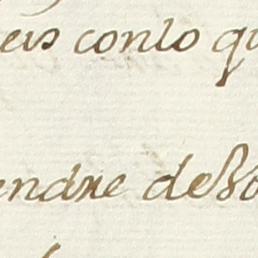 eis conlo qu
endre deBo